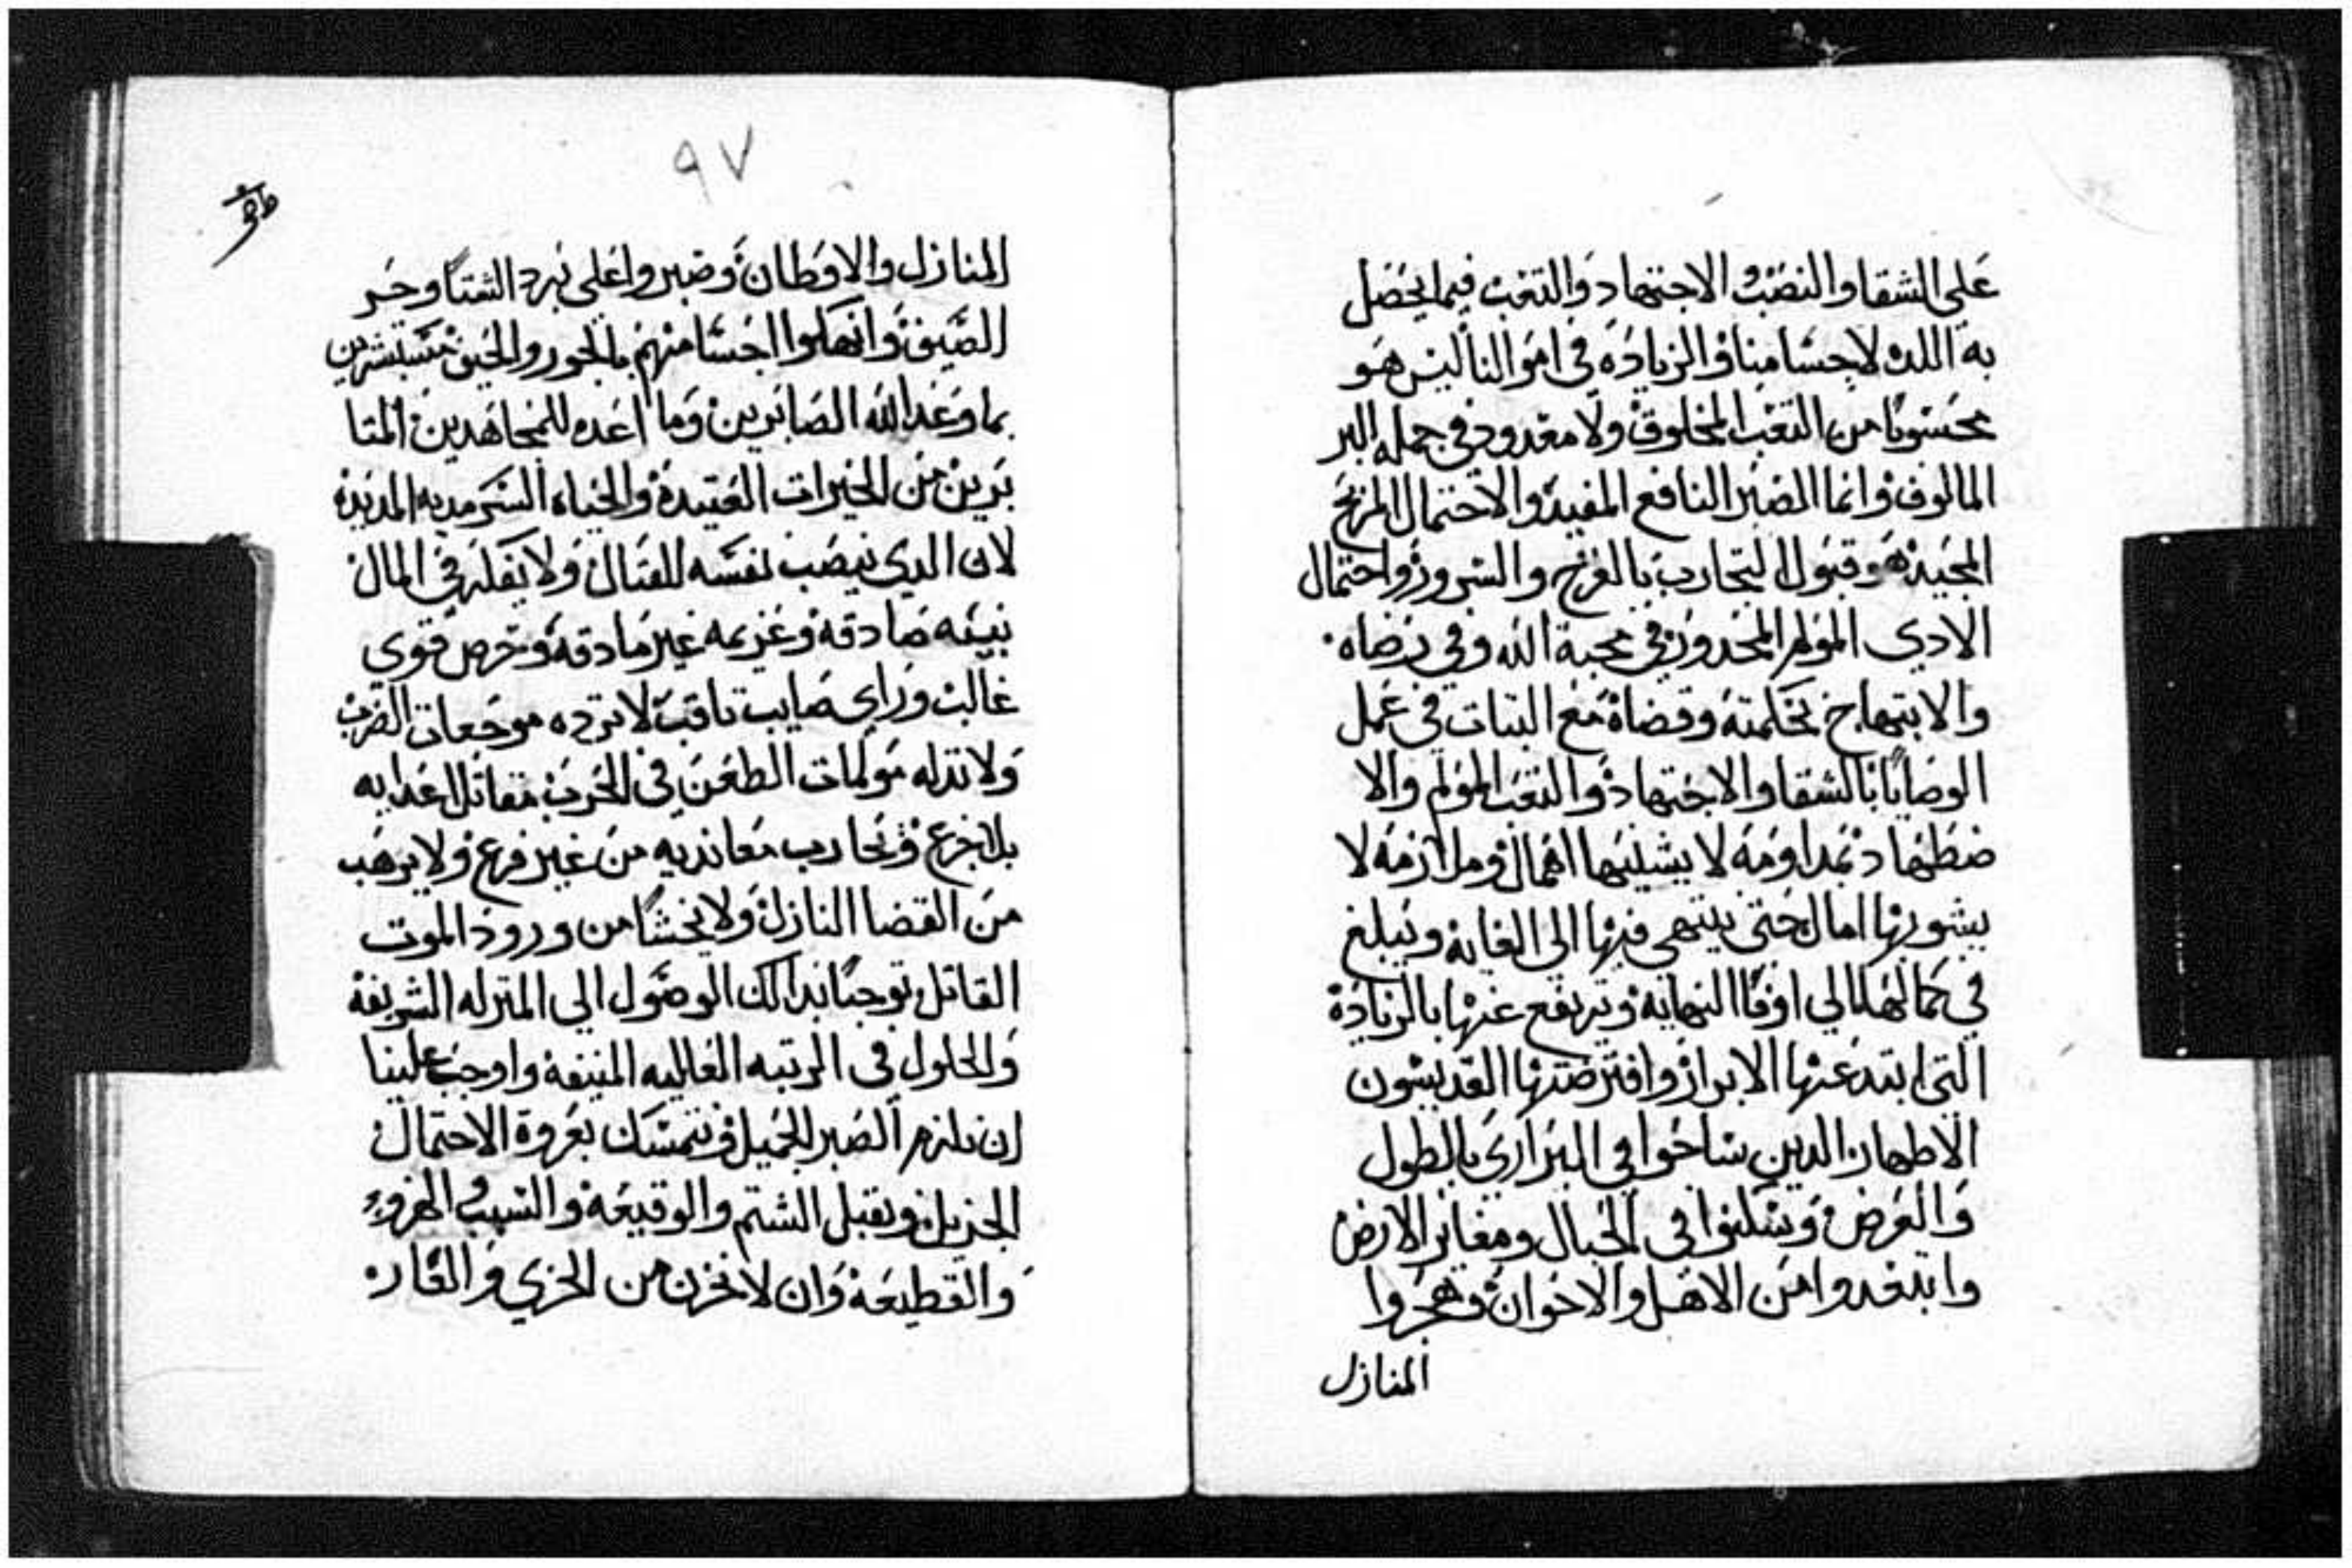 على الشقا والنصب والاجتهاد والتعب فيما يحصل
به اللده لاجسامنا والزياده في اموالنا ليس هو
محسوبا من التعب المخلوق ولا معدود في جمله البر
المالوف وانما الصبر النافع المفيد والاحتمال المربح
المجيد هو قبول التجارب بالفرح والسرور واحتمال
الادي المولم المحدور في محبة الله وفي رضاه
والابتهاج بحكمته وقضاه مع التبات في عمل
الوصايا بالشقا والاجتهاد والتعب المولم والا
ضطهاد بمداومه لا يشينها اهمال وملازمه لا
يشوبها امال حتى ينتهي فيها الى الغاية ويبلغ
في كمالها الي اوفا النهاية ويرتفع عنها بالزيادة
التي ابتدعتها الابرار وافترضتها القديسون
الاطهار الدين ساحوا في البراري بالطول
والعرض وسكنوا في الجبال ومغاير الارض
وابتعدوا من الاهل والاخوان وهجروا
المنازل
٩٧
المنازل والاوطان وصبروا على برد الشتا وحر
الصيف وانهكوا اجسامهم بالجور والحيف مستبشرين
بما وعد الله الصابرين وما اعده للمجاهدين المتا
برين من الخيرات العتيدة والحياه السرمديه المديدة
لان الدي ينصب نفسه للقتال ولا يفكر في المال
بنيه صادقه وعزيمه غير مادقه وحرص قوي
غالب وراي صايب تاقب لا ترده موجعات الضرب
ولا تدله مولمات الطعن في الحرب مقاتل اعدايه
بلا جزع ويحارب معانديه من غير فزع ولا يرهب
من القضا النازل ولا يخشا من ورود الموت
القاتل توجبا بدالك الوصول الى المنزله الشريفة
والحلول في الرتبه العاليه المنيفة واوجب علينا
ان نلزم الصبر الجميل ونتمسك بعروة الاحتمال
الجزيل ونقبل الشتم والوقيعة والسب والهزو
والقطيعة وان لا نحزن من الخزي والعار